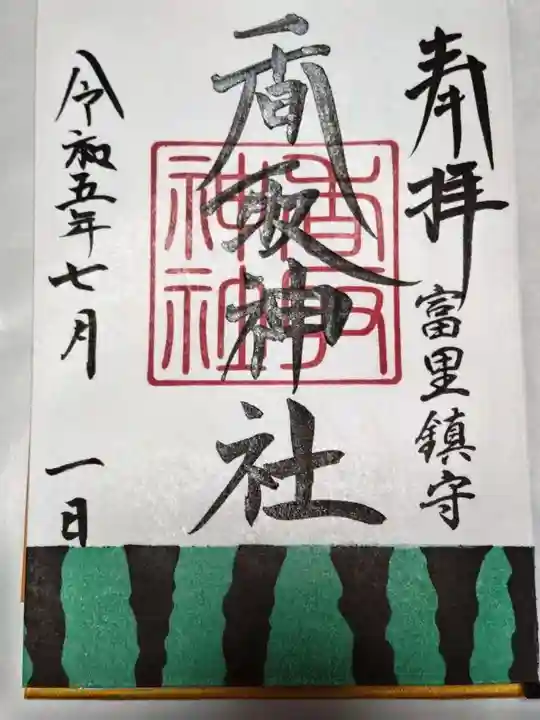 奉拝
富里鎮守
香取神社
香取
神社
令和五年七月 一日